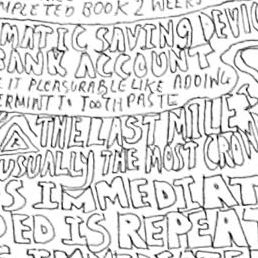 MPLETED BOOK 2 WEEKS
MATIC SAVING DEVIC
BANK ACCOUNT
E IT PLEASURABLE LIKE ADDING
ERMINT TO TOOTHPASTE
THE LAST MILE
USUALLY THE MOST CROW
S IMMEDIAT
DED IS REPEAT
IMMEDIATE